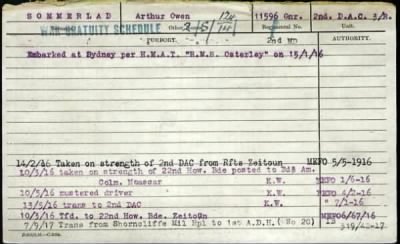 SOMMERLAD Arthur Owen 11596 Gnr. 2nd. D.A.C. 3/R.
WAR GRATUITY SCHEDULE 2/S/ Regimental No. Unit.
PURPORT. 2nd MD AUTHORITY.
Embarked at Sydney per H.M.A.T. "R.M.S. Osterley" on 15/1/16
14/2/16 Taken on strength of 2nd DAC from Rfts Zeitoun MEFO 5/5-1916
10/3/16 taken on strength of 22nd How. Bde posted to Bde Am.
Colm. Moascar K.W. MEFO 1/6-16
10/5/16 mustered driver K.W. MEFO 4/2-16
13/5/16 trans to 2nd DAC K.W. " 7/1-16
10/3/16 Tfd. to 22nd How. Bde. Zeitoun MEFO 6/67/16
7/9/17 Trans from Shorncliffe Mil Hpl to 1st A.D.H. (No 20) 319/42-17